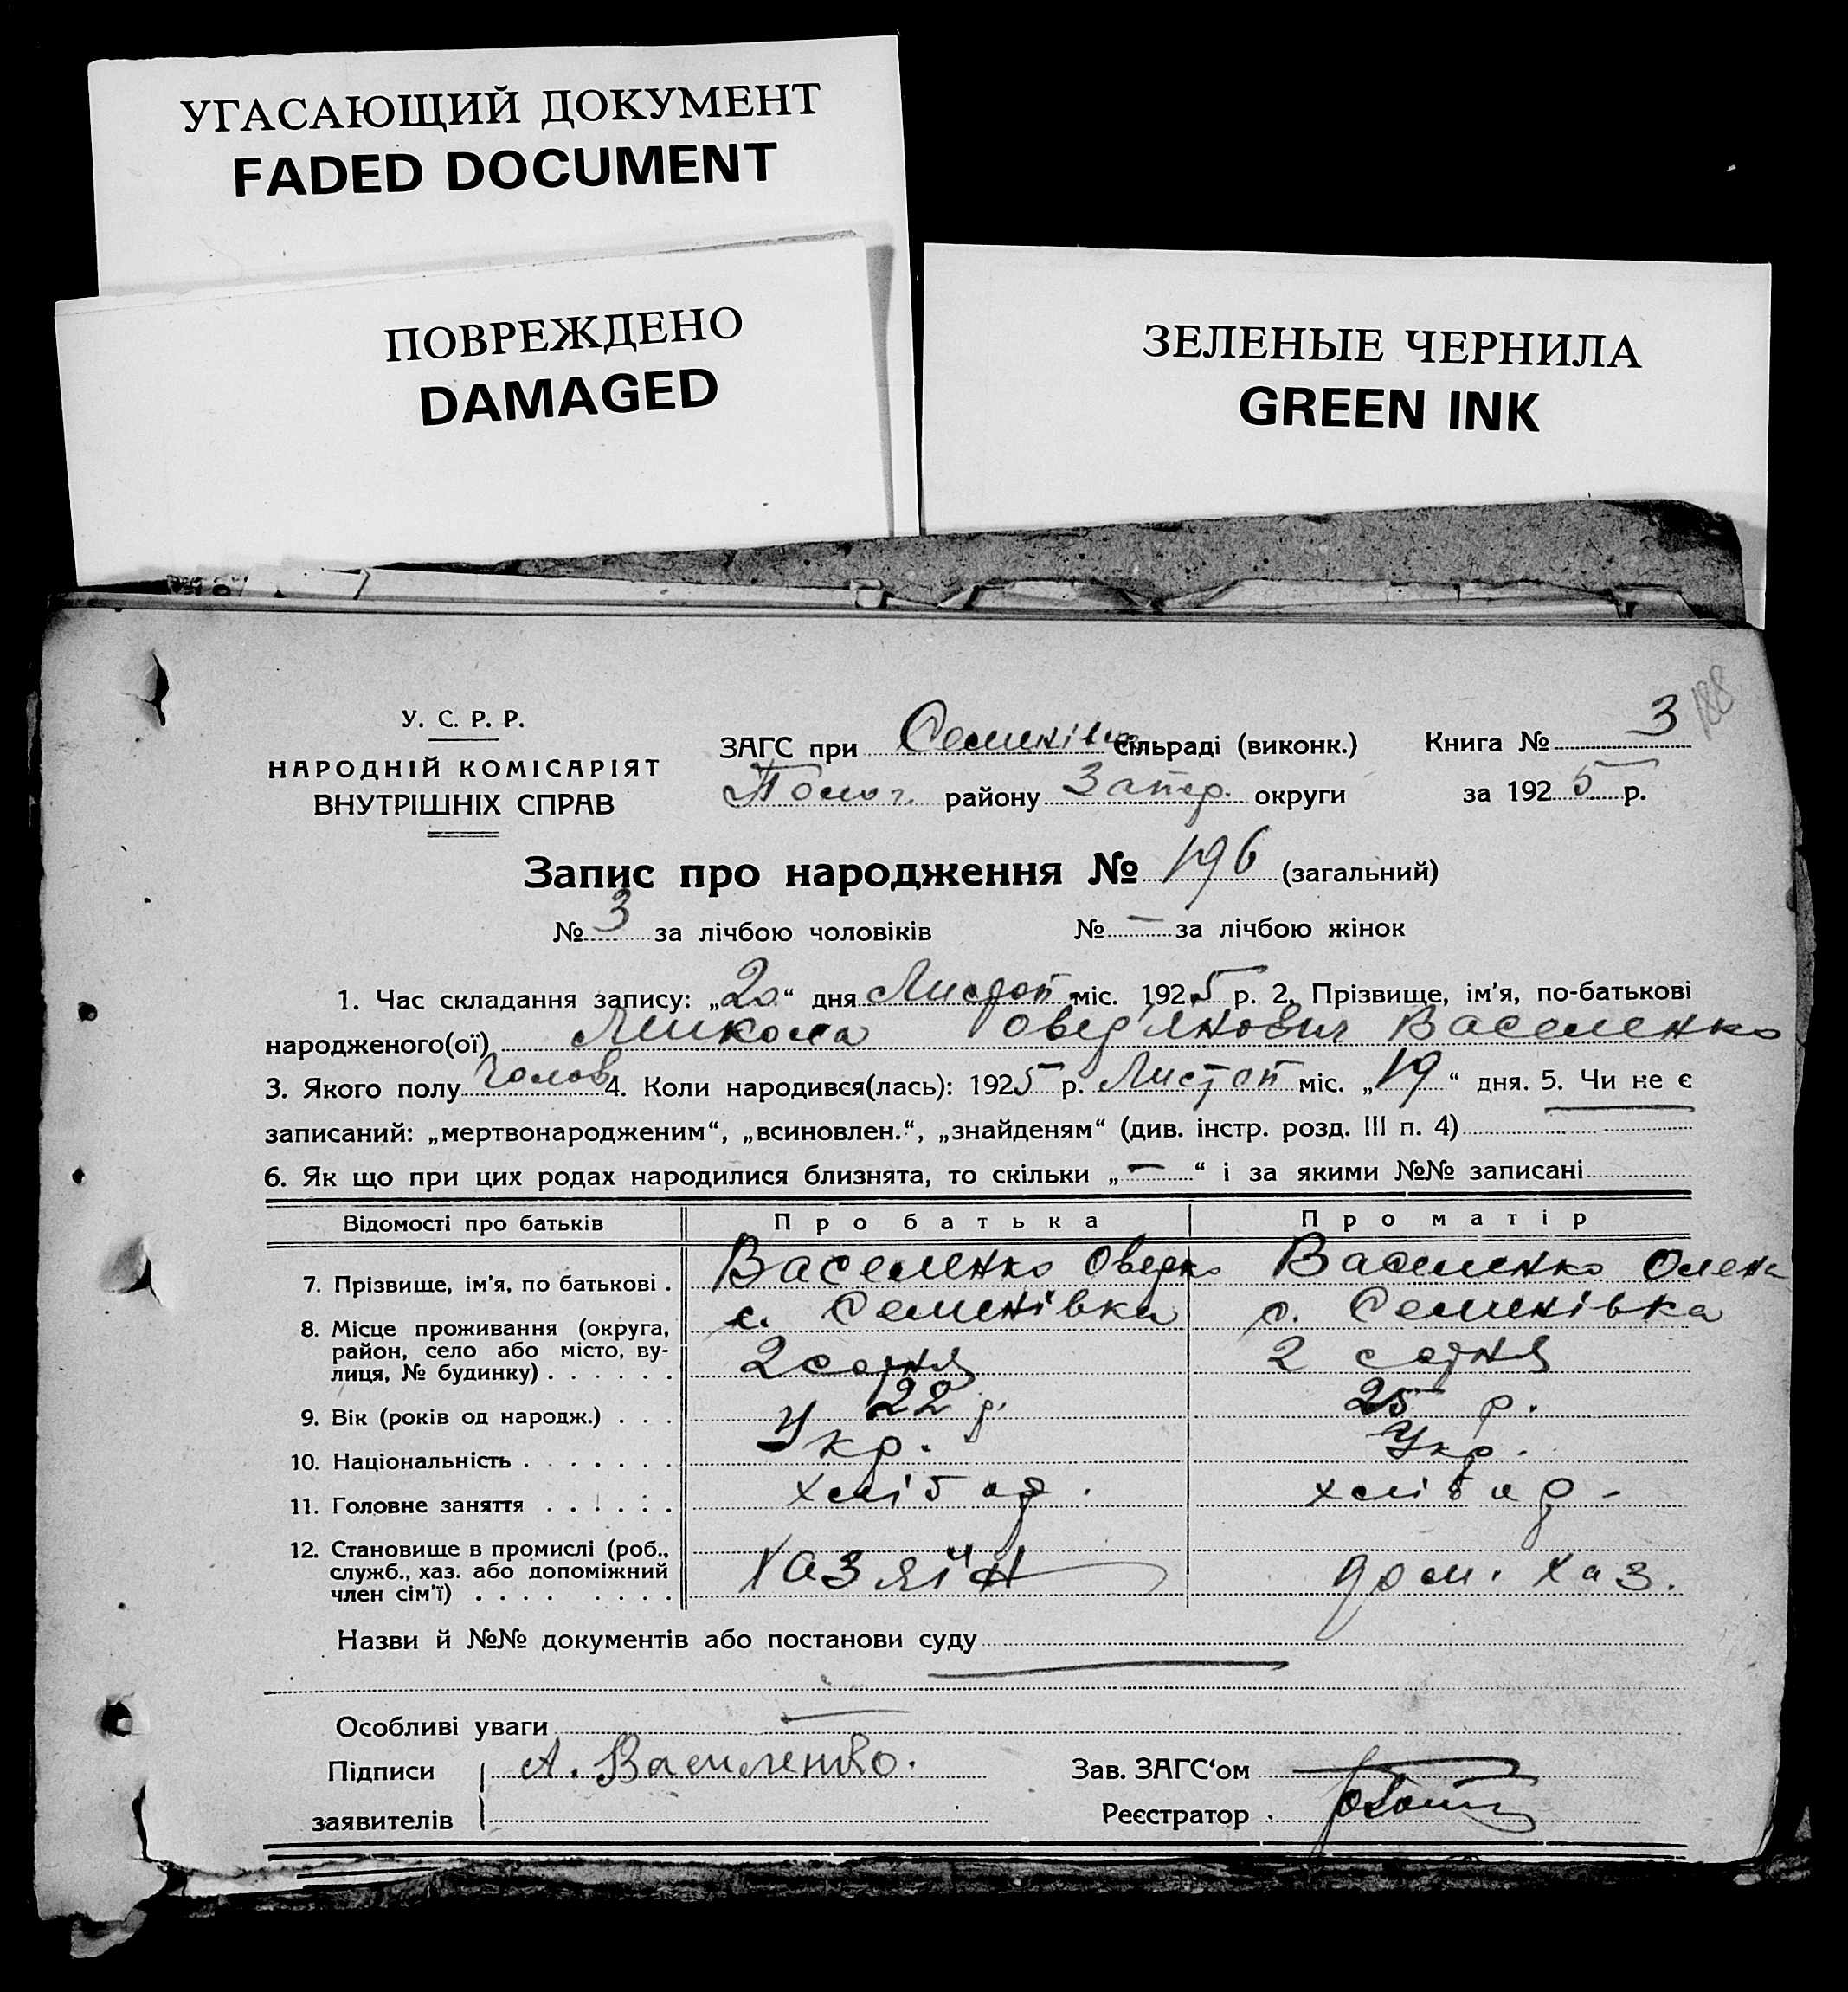 УГАСАЮЩИЙ ДОКУМЕНТ
FADED DOCUMENT
ПОВРЕЖДЕНО
DAMAGED
ЗЕЛЕНЫЕ ЧЕРНИЛА
GREEN INK
188
У. С. Р. Р.
НАРОДНІЙ КОМІСАРІЯТ
ВНУТРІШНІХ СПРАВ
ЗАГС при Семенівськ сільраді (виконк.) Книга № 3
Полог. району Запор. округи за 1925 р.
Запис про народження № 196 (загальний)
№ 3 за лічбою чоловіків № — за лічбою жінок
1. Час складання запису: „20“ дня Листоп міс. 1925 р. 2. Прізвище, ім'я, по-батькові
народженого(ої) Микола Овер'янович Василенко
3. Якого полу Чолов 4. Коли народився(лась): 1925 р. Листоп міс. „19“ дня. 5. Чи не є
записаний: „мертвонародженим“, „всиновлен.“, „знайденям“ (див. інстр. розд. III п. 4)
6. Як що при цих родах народилися близнята, то скільки „—“ і за якими №№ записані
Відомості про батьків Про батька Про матір
7. Прізвище, ім'я, по батькові . Василенко Оверко Василенко Олена
8. Місце проживання (округа, район, село або місто, вулиця, № будинку) . . . . . . с. Семенівка с. Семенівка
2 сотня 2 сотня
9. Вік (років од народж.) . . . 22 р. 25 р.
10. Національність . . . . . . . Укр. Укр.
11. Головне заняття . . . . . . хлібор. хлібор.
12. Становище в промислі (роб., служб., хаз. або допоміжний член сім'ї) . . . . . . . . хазяїн дом. хаз.
Назви й №№ документів або постанови суду
Особливі уваги
Підписи А. Василенко. Зав. ЗАГС‘ом
заявителів Реєстратор .